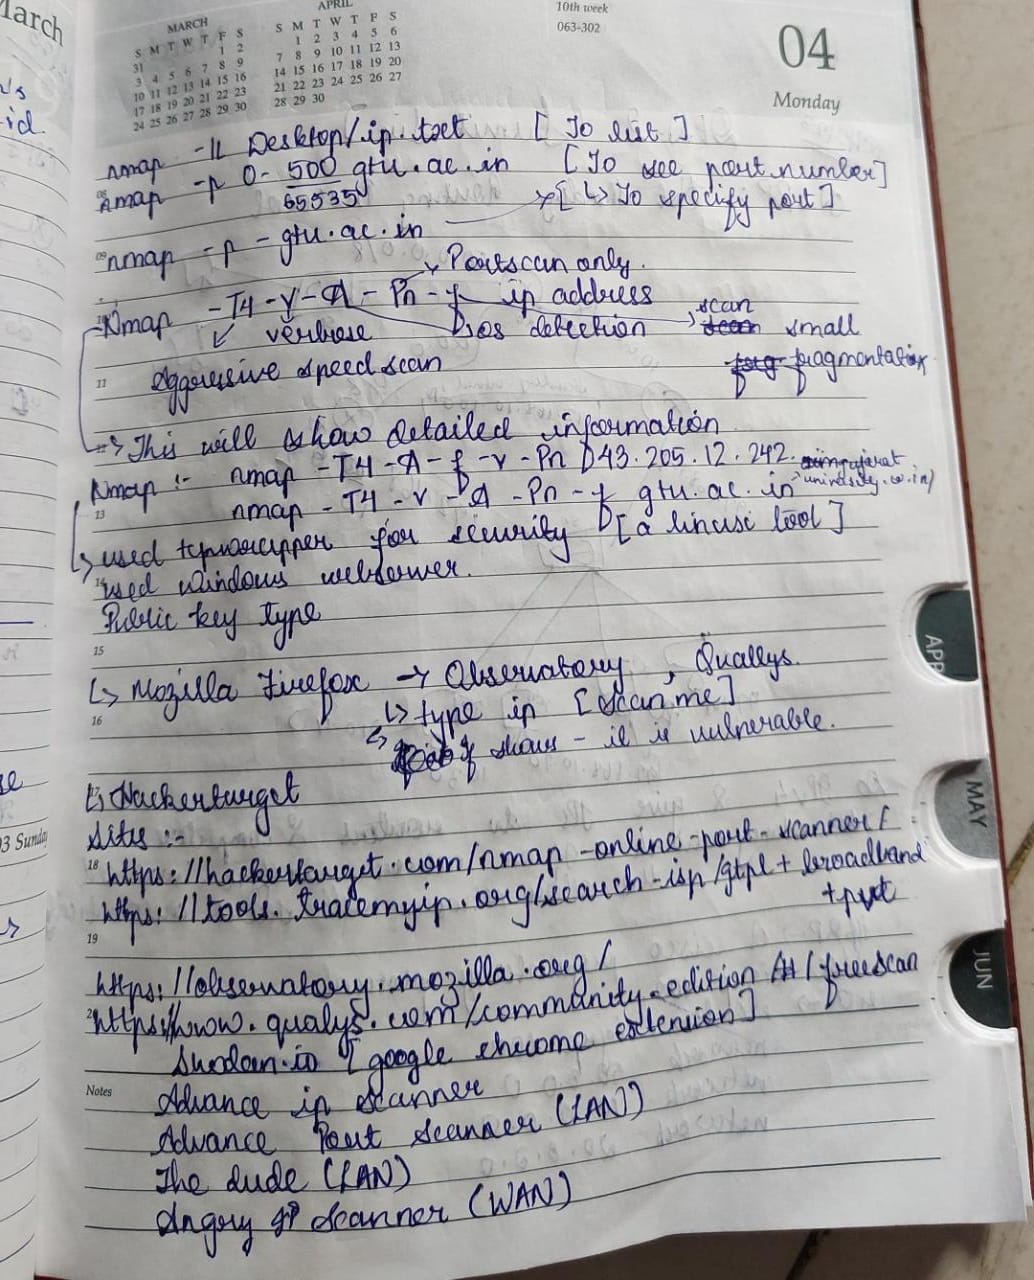 March
MARCH
S M T W T F S
31 1 2
3 4 5 6 7 8 9
10 11 12 13 14 15 16
17 18 19 20 21 22 23
24 25 26 27 28 29 30
APRIL
S M T W T F S
1 2 3 4 5 6
7 8 9 10 11 12 13
14 15 16 17 18 19 20
21 22 23 24 25 26 27
28 29 30
10th week
063-302
04
Monday
nmap -IL Desktop/ip.txt [To list]
nmap -p 0-500 gtu.ac.in [To see port number]
65535 [↳ To specify port]
nmap -p - gtu.ac.in
→ Portscan only.
Nmap -T4 -v -A - Pn - f ip address
verbose os detection → scan small
Aggressive speed scan fragmentation
11
→ This will show detailed information
Nmap :- nmap -T4 -A -f -v -Pn 43.205.12.242
13 nmap -T4 -v -A -Pn -f gtu.ac.in university.co.in)
↳ used tcpwrapper for security [a linux tool]
used windows webserver.
Public key type
15
↳ Mozilla Firefox → Observatory, Quallys.
16 ↳ type in [scan me]
↳ if shows - it is vulnerable.
↳ Hackertarget
03 Sunday
Sites :-
18 https://hackertarget.com/nmap-online-port-scanner/
https://tools.tracemyip.org/search-isp/gtpl+broadband
+pvt
19
https://observatory.mozilla.org/
https://www.qualys.com/community-edition/#/freescan
Shodan.io [google chrome extension]
Notes
Advance ip scanner
Advance Port Scanner (LAN)
The dude (LAN)
Angry IP Scanner (WAN)
APR
MAY
JUN